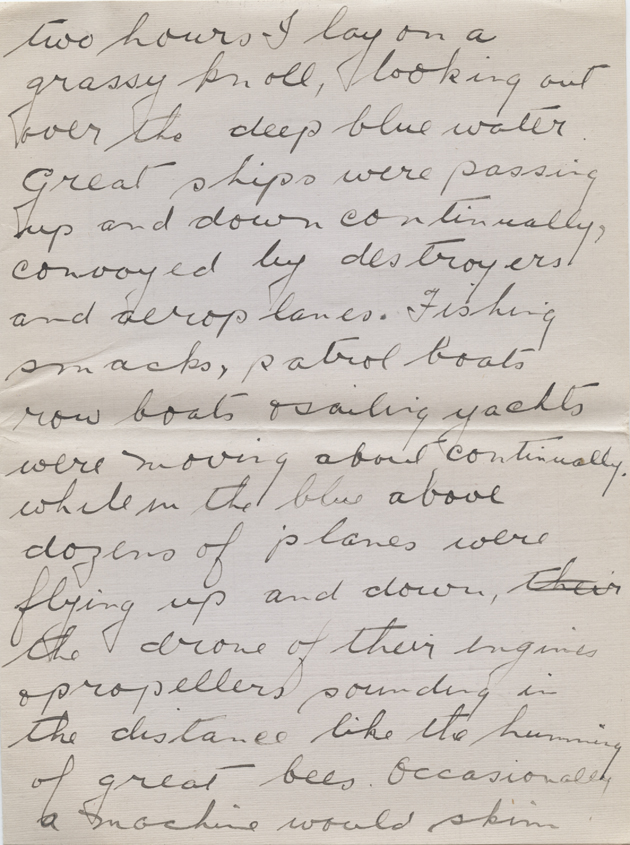 two hours I lay on a
grassy knoll, looking out
over the deep blue water.
Great ships were passing
up and down continually,
convoyed by destroyers
and aeroplanes. Fishing
smacks, patrol boats
row boats & sailing yachts
were moving about continually.
while in the blue above
dozens of planes were
flying up and down, their
the drone of their engines
& propellers sounding in
the distance like the humming
of great bees. Occasionally
a machine would skim